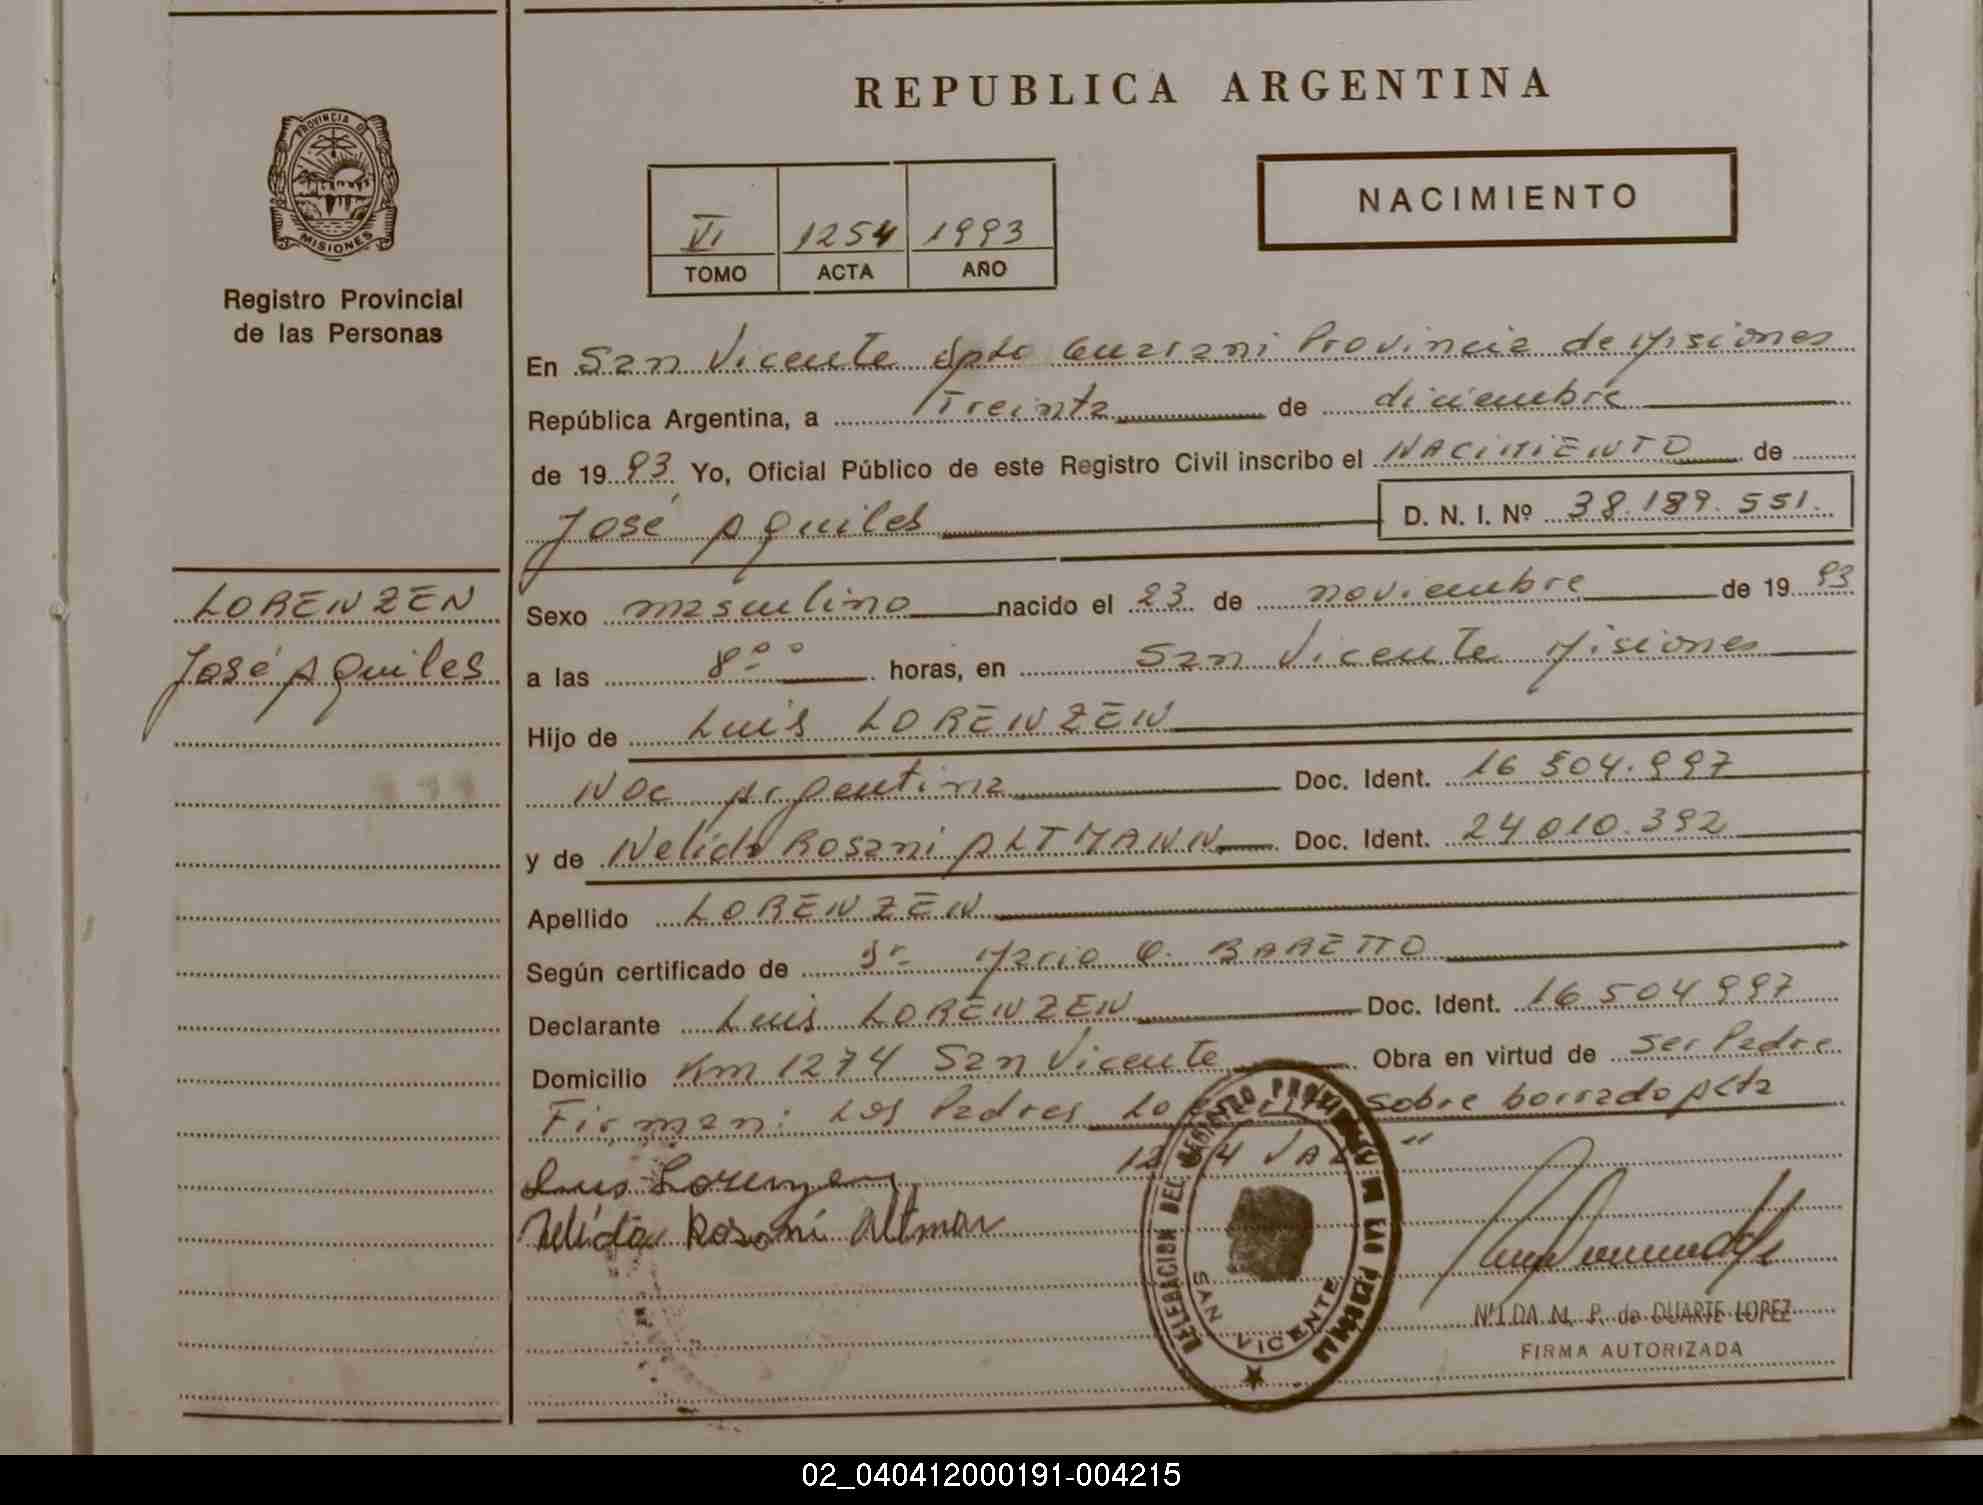 REPUBLICA ARGENTINA
PROVINCIA D
MISIONES
Registro Provincial
de las Personas
NACIMIENTO
VI 1254 1993
TOMO ACTA AÑO
En San Vicente Dpto Guarani Provincia de Misiones
República Argentina, a Treinta de diciembre
de 1993 Yo, Oficial Público de este Registro Civil inscribo el NACIMIENTO de
José Aquiles D. N. I. Nº 38.189.551.
LORENZEN
José Aquiles
Sexo masculino nacido el 23 de noviembre de 1993
a las 8ºº horas, en San Vicente Misiones
Hijo de Luis LORENZEN
Nac Argentina Doc. Ident. 16 504.997
y de Nelida Rosani ALTMANN Doc. Ident. 24 010.392
Apellido LORENZEN
Según certificado de Dr Mario O. BARETTO
Declarante Luis LORENZEN Doc. Ident. 16 504 997
Domicilio Km 1274 San Vicente Obra en virtud de ser Padre
Firman: Los Padres sobre borrado Acta
Luis Lorenzen
Nelida Rosani Altman
DELEGACION DEL REGISTRO PROVINCIAL DE LAS PERSONAS
SAN VICENTE
NILDA M. P. de DUARTE LOPEZ
FIRMA AUTORIZADA
02_040412000191-004215